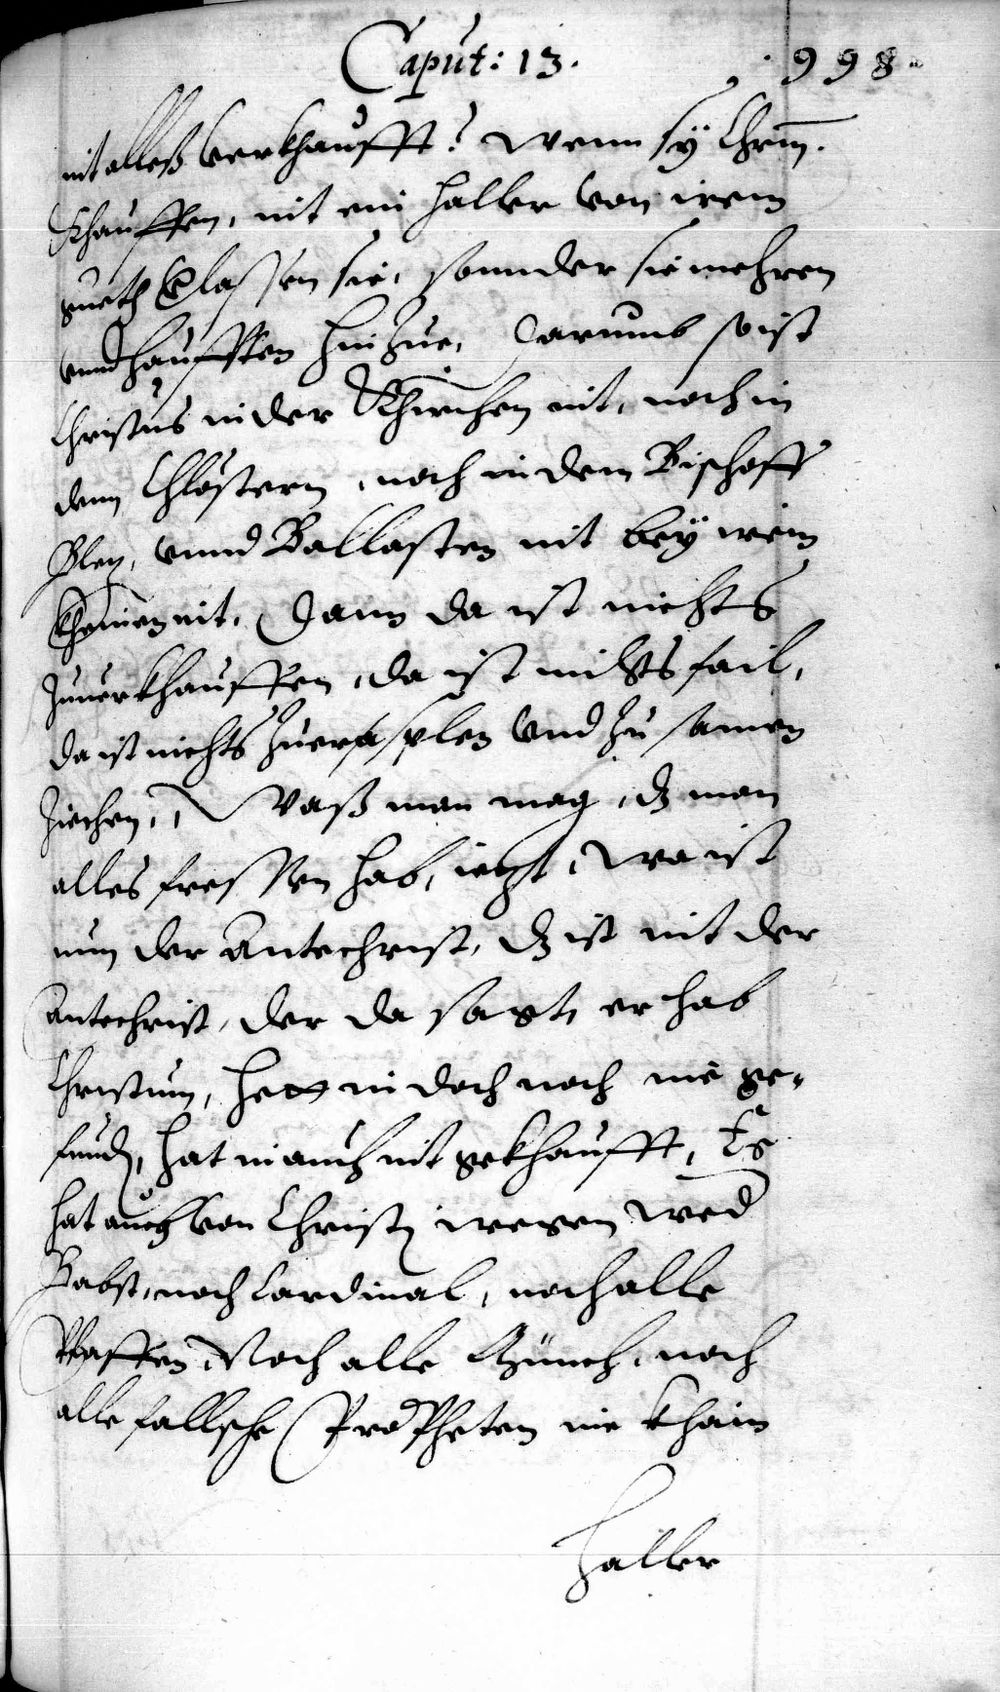 Caput: 13. 998.
nit alleß verkhaufft? wenn sÿ Chrm̄.
Khauffen, nit ein haller von irem
gueth Erlassen sie, sonnder sie mehren
vnnd hauffen hinzue, Darumb so ist
Christus in der Khirchen nit, noch in
denn Chlöstern, noch in den Bischoff
vnnd Ballasten nit beÿ irem
nit, Dann da ist nichts
zuuerkhauffen, da ist nichts fail,
da ist nichts zuerrasplen vnd zu samen
ziechen, Waß man mag, dz man
alles fressen hab, iezt, wa ist
nun der Antechrist, dz ist nit der
Antechrist, der da sagt, er hab
Christum, hett in doch noch nie ge-
fund, hat in auch nit gekhaufft, Es
hat auch von Christj wegen wed
Babst, noch Cardinal, noch alle
Pfaffen, Noch alle Münch, noch
alle fallsche Propheten nie khain
haller